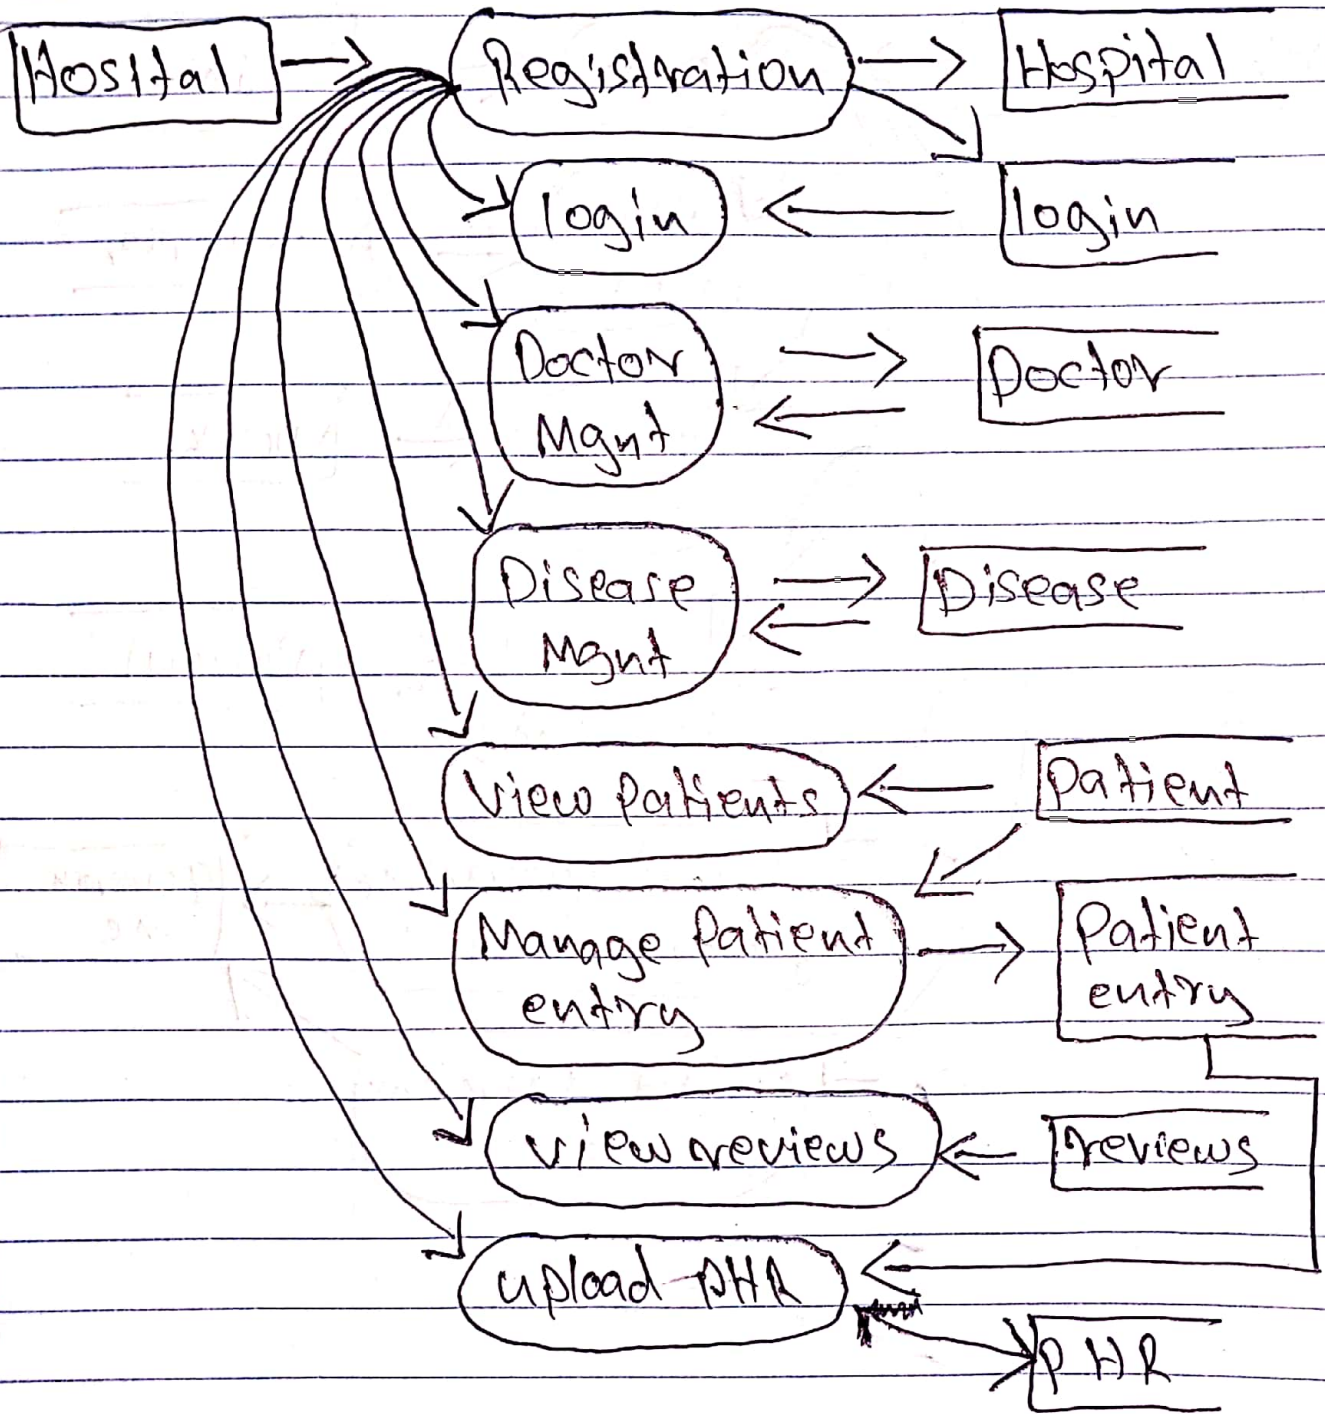 Hosital
Registration
Hospital
login
login
Doctor
Mgnt
Doctor
Disease
Mgnt
Disease
View Patients
Patient
Manage Patient
entry
Patient
entry
view reviews
reviews
upload PHR
PHR